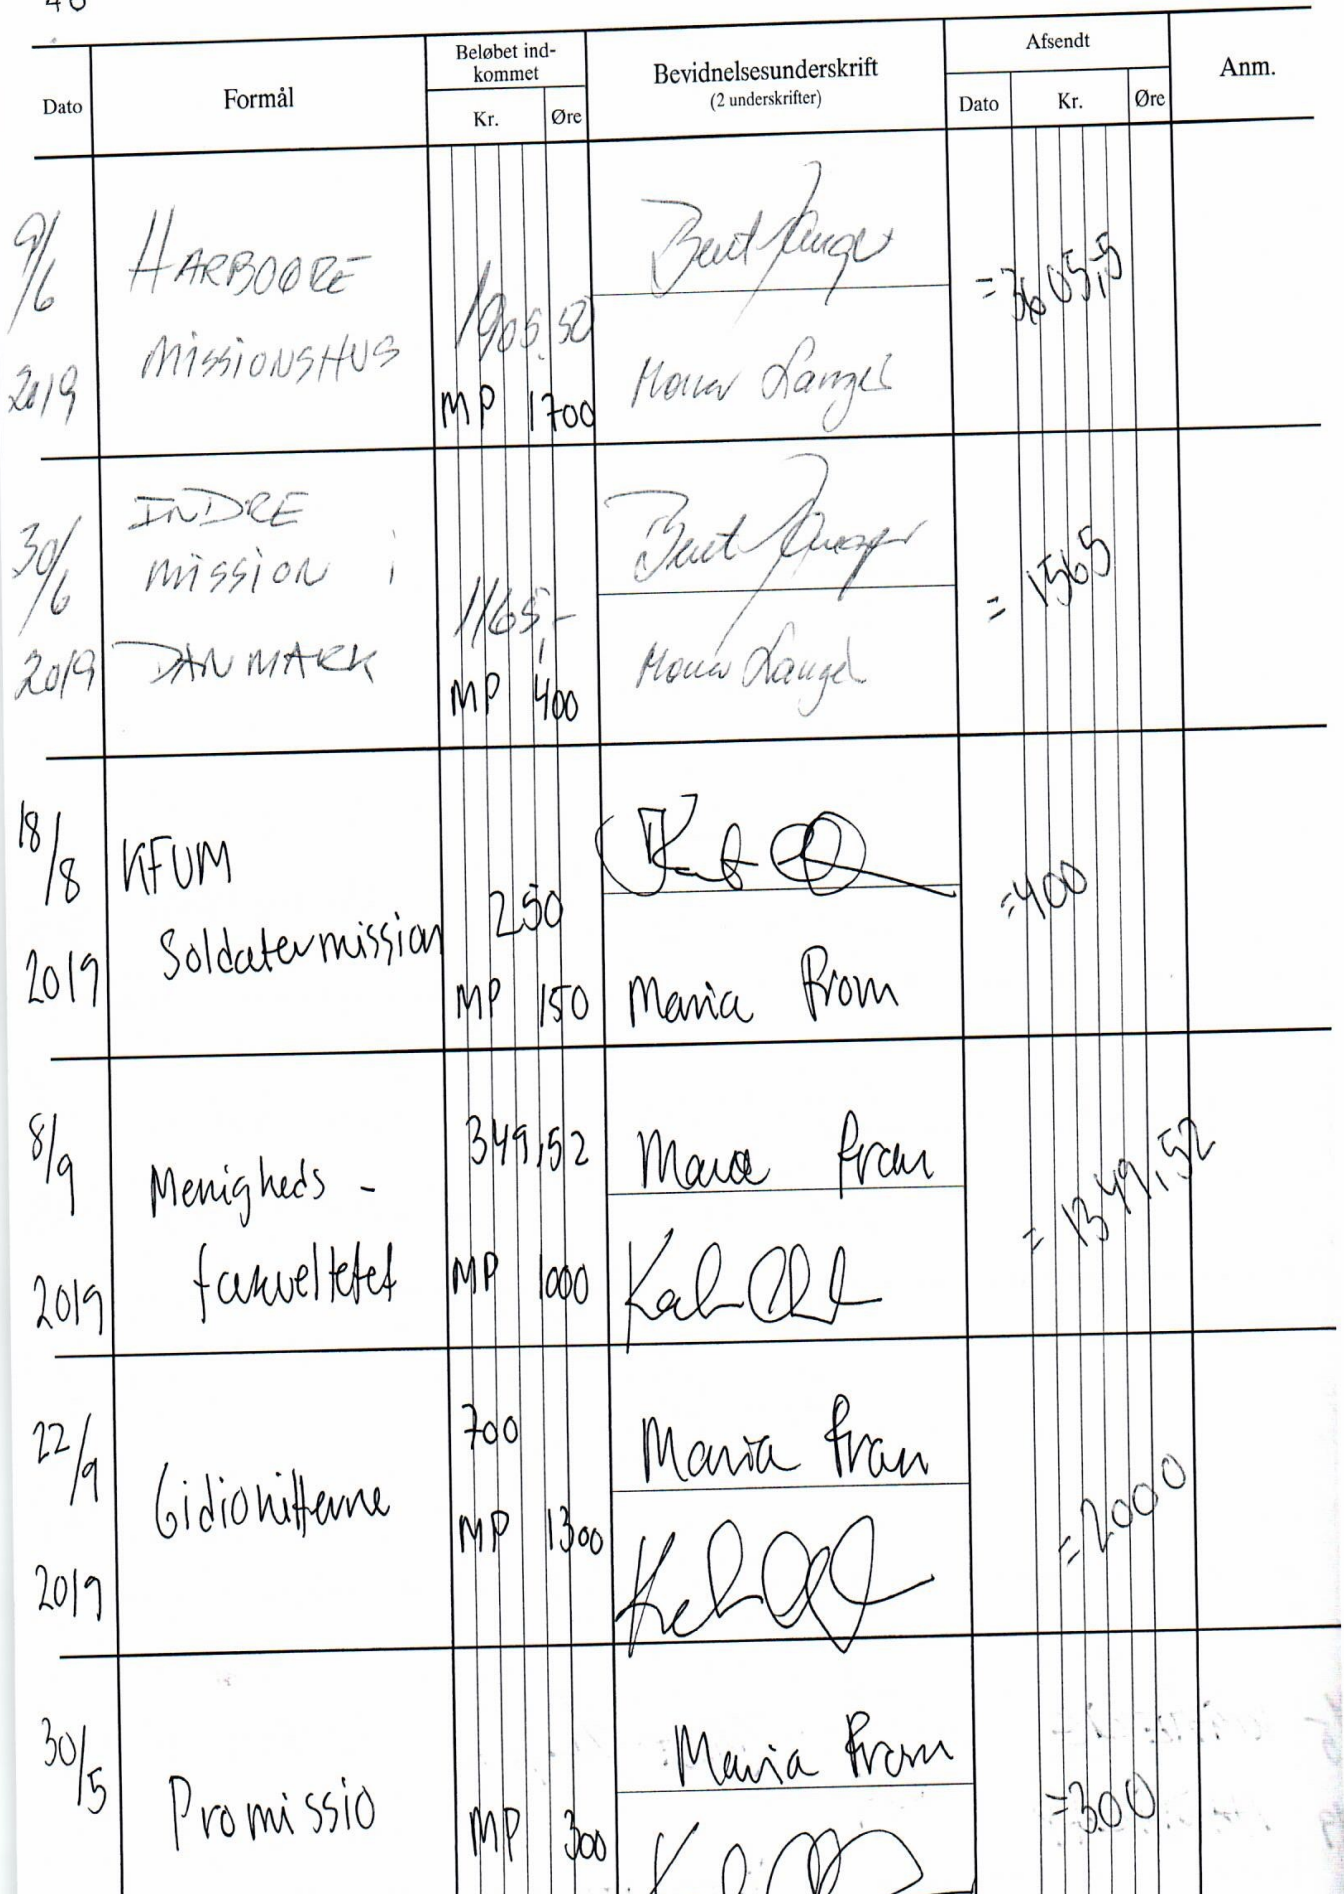 Dato Formål Beløbet ind-
kommet
Kr. Øre
Bevidnelsesunderskrift
(2 underskrifter)
Afsendt
Dato Kr. Øre
Anm.
9/6
2019
HARBOØRE
MISSIONSHUS
1905,50
MP 1700
=3605,5
30/6
2019
INDRE
MISSION i
DANMARK
1165,-
MP 400
= 1565
18/8
2019
KFUM
Soldatermission
250
MP 150
Maria From
=400
8/9
2019
Menigheds -
fakueltetet
349,52
MP 1000
= 1349,52
22/9
2019
Gidionitterne
700
MP 1300
Maria From
=2000
30/5
Promissio
MP 300
Maria From
=300